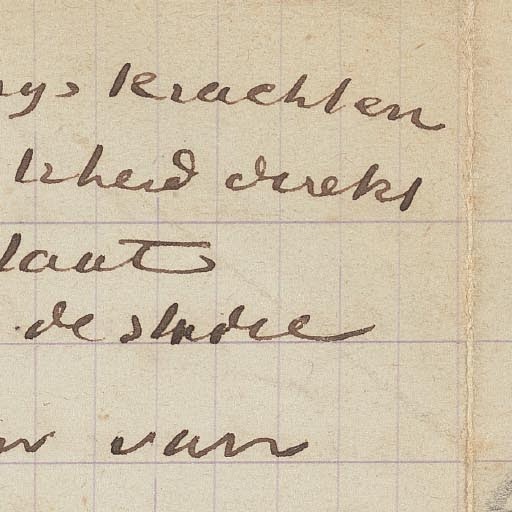 krachten
kheid direkt
laat
de studie
van